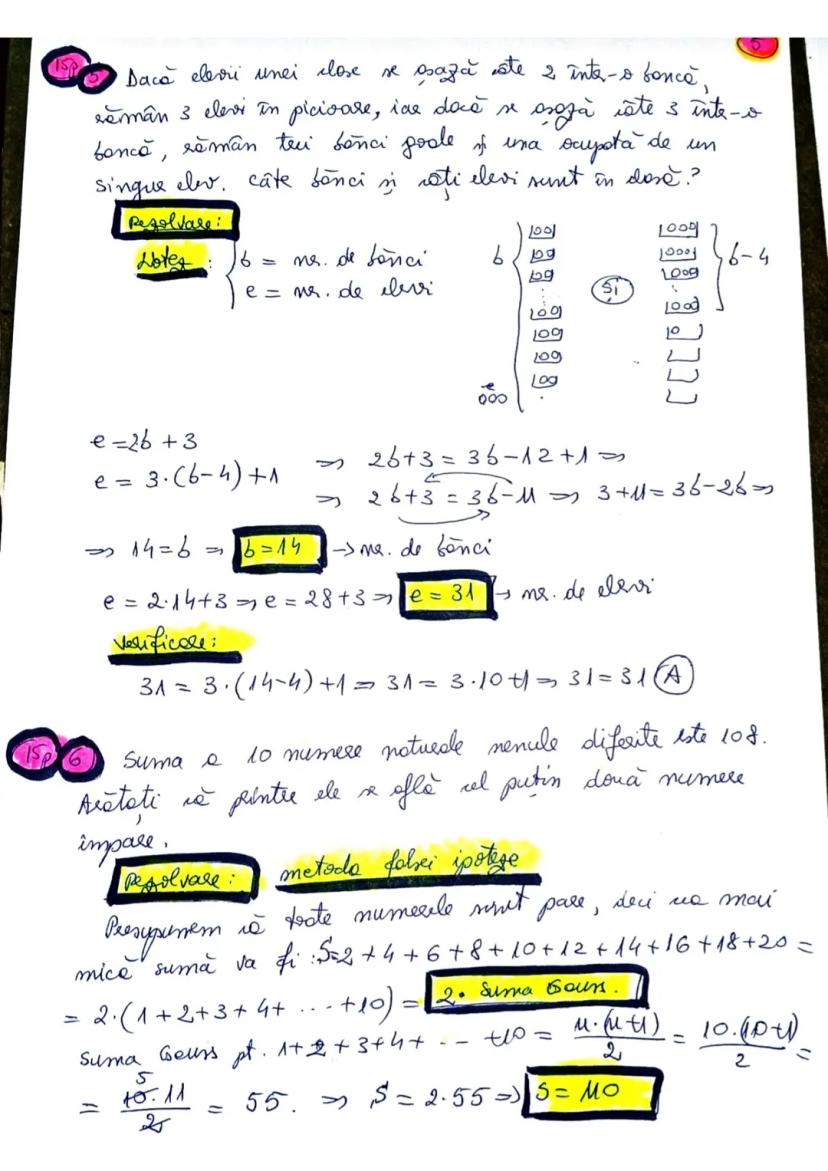 5
15p 5 Dacă elevii unei clase se așază câte 2 într-o bancă,
rămân 3 elevi în picioare, iar dacă se așază câte 3 într-o
bancă, rămân trei bănci goale și una ocupată de un
singur elev. Câte bănci și câți elevi sunt în clasă?
Rezolvare:
Notez: b = nr. de bănci
e = nr. de elevi
b și b-4
e = 2b + 3
e = 3·(b-4)+1
⇒ 2b+3 = 3b-12+1 ⇒
⇒ 2b+3 = 3b-11 ⇒ 3+11 = 3b-2b ⇒
⇒ 14=b ⇒ b=14 → nr. de bănci
e = 2·14+3 ⇒ e = 28+3 ⇒ e = 31 → nr. de elevi
Verificare:
31 = 3·(14-4)+1 ⇒ 31 = 3·10+1 ⇒ 31=31 A
15p 6 Suma a 10 numere naturale nenule diferite este 108.
Arătați că printre ele se află cel puțin două numere
impare.
Rezolvare: metoda falsei ipoteze
Presupunem că toate numerele sunt pare, deci cea mai
mică sumă va fi: S=2+4+6+8+10+12+14+16+18+20 =
= 2·(1+2+3+4+ ... +10) = 2· Suma Gauss.
Suma Gauss pt. 1+2+3+4+ ... +10 = n·(n+1)/2 = 10·(10+1)/2 =
= 5 10·11/2 = 55. ⇒ S = 2·55 ⇒ S = 110